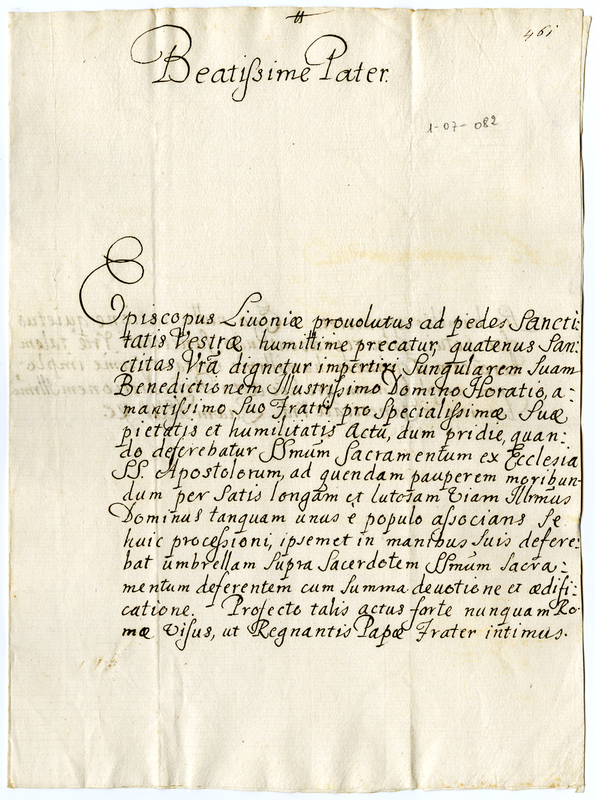 461
Beatissime Pater.
1-07-082
Episcopus Livoniæ provolutus ad pedes Sancti:
tatis Vestræ humillime precatur, quatenus San:
ctitas Vrā dignetur impertiri Sungularem Suam
Benedictionem Illustrissimo Domino Horatio, a:
mantissimo Suo Fratri pro Specialissimæ Suæ
pietatis et humilitatis Actu, dum pridie, quan:
do deferebatur SSmum Sacramentum ex Ecclesia
SS. Apostolorum, ad quendam pauperem moribun:
dum per Satis longam et lutosam Viam Illrmus
Dominus tanquam unus è populo associans Se
huic processioni, ipsemet in manibus Suis defere:
bat umbrellam Supra Sacerdotem SSmum Sacra:
mentum deferentem cum Summa devotione et ædifi:
catione. Profecto talis actus forte nunquam Ro:
mæ Visus, ut Regnantis Papæ Frater intimus.